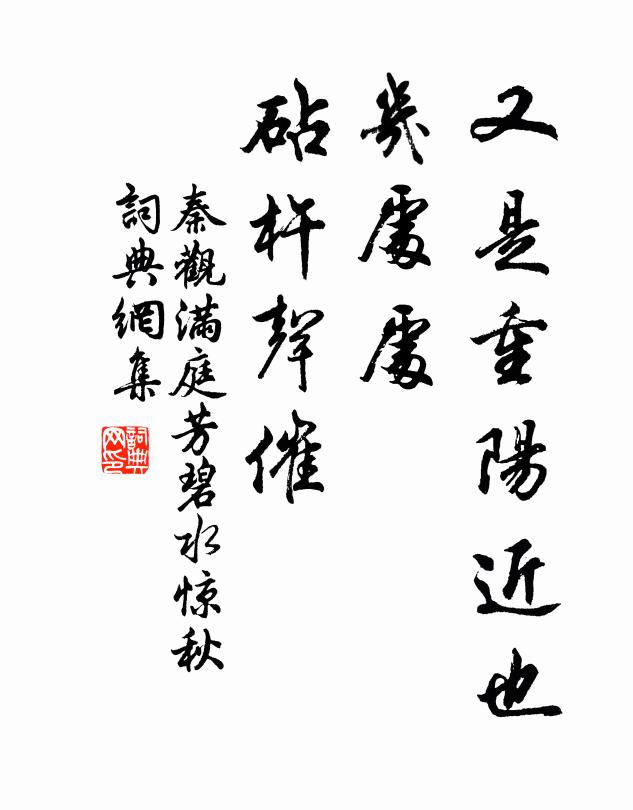 又是重陽近也
幾處處
砧杵聲催
秦觀满庭芳碧水惊秋
詞典網集
詞典
网印